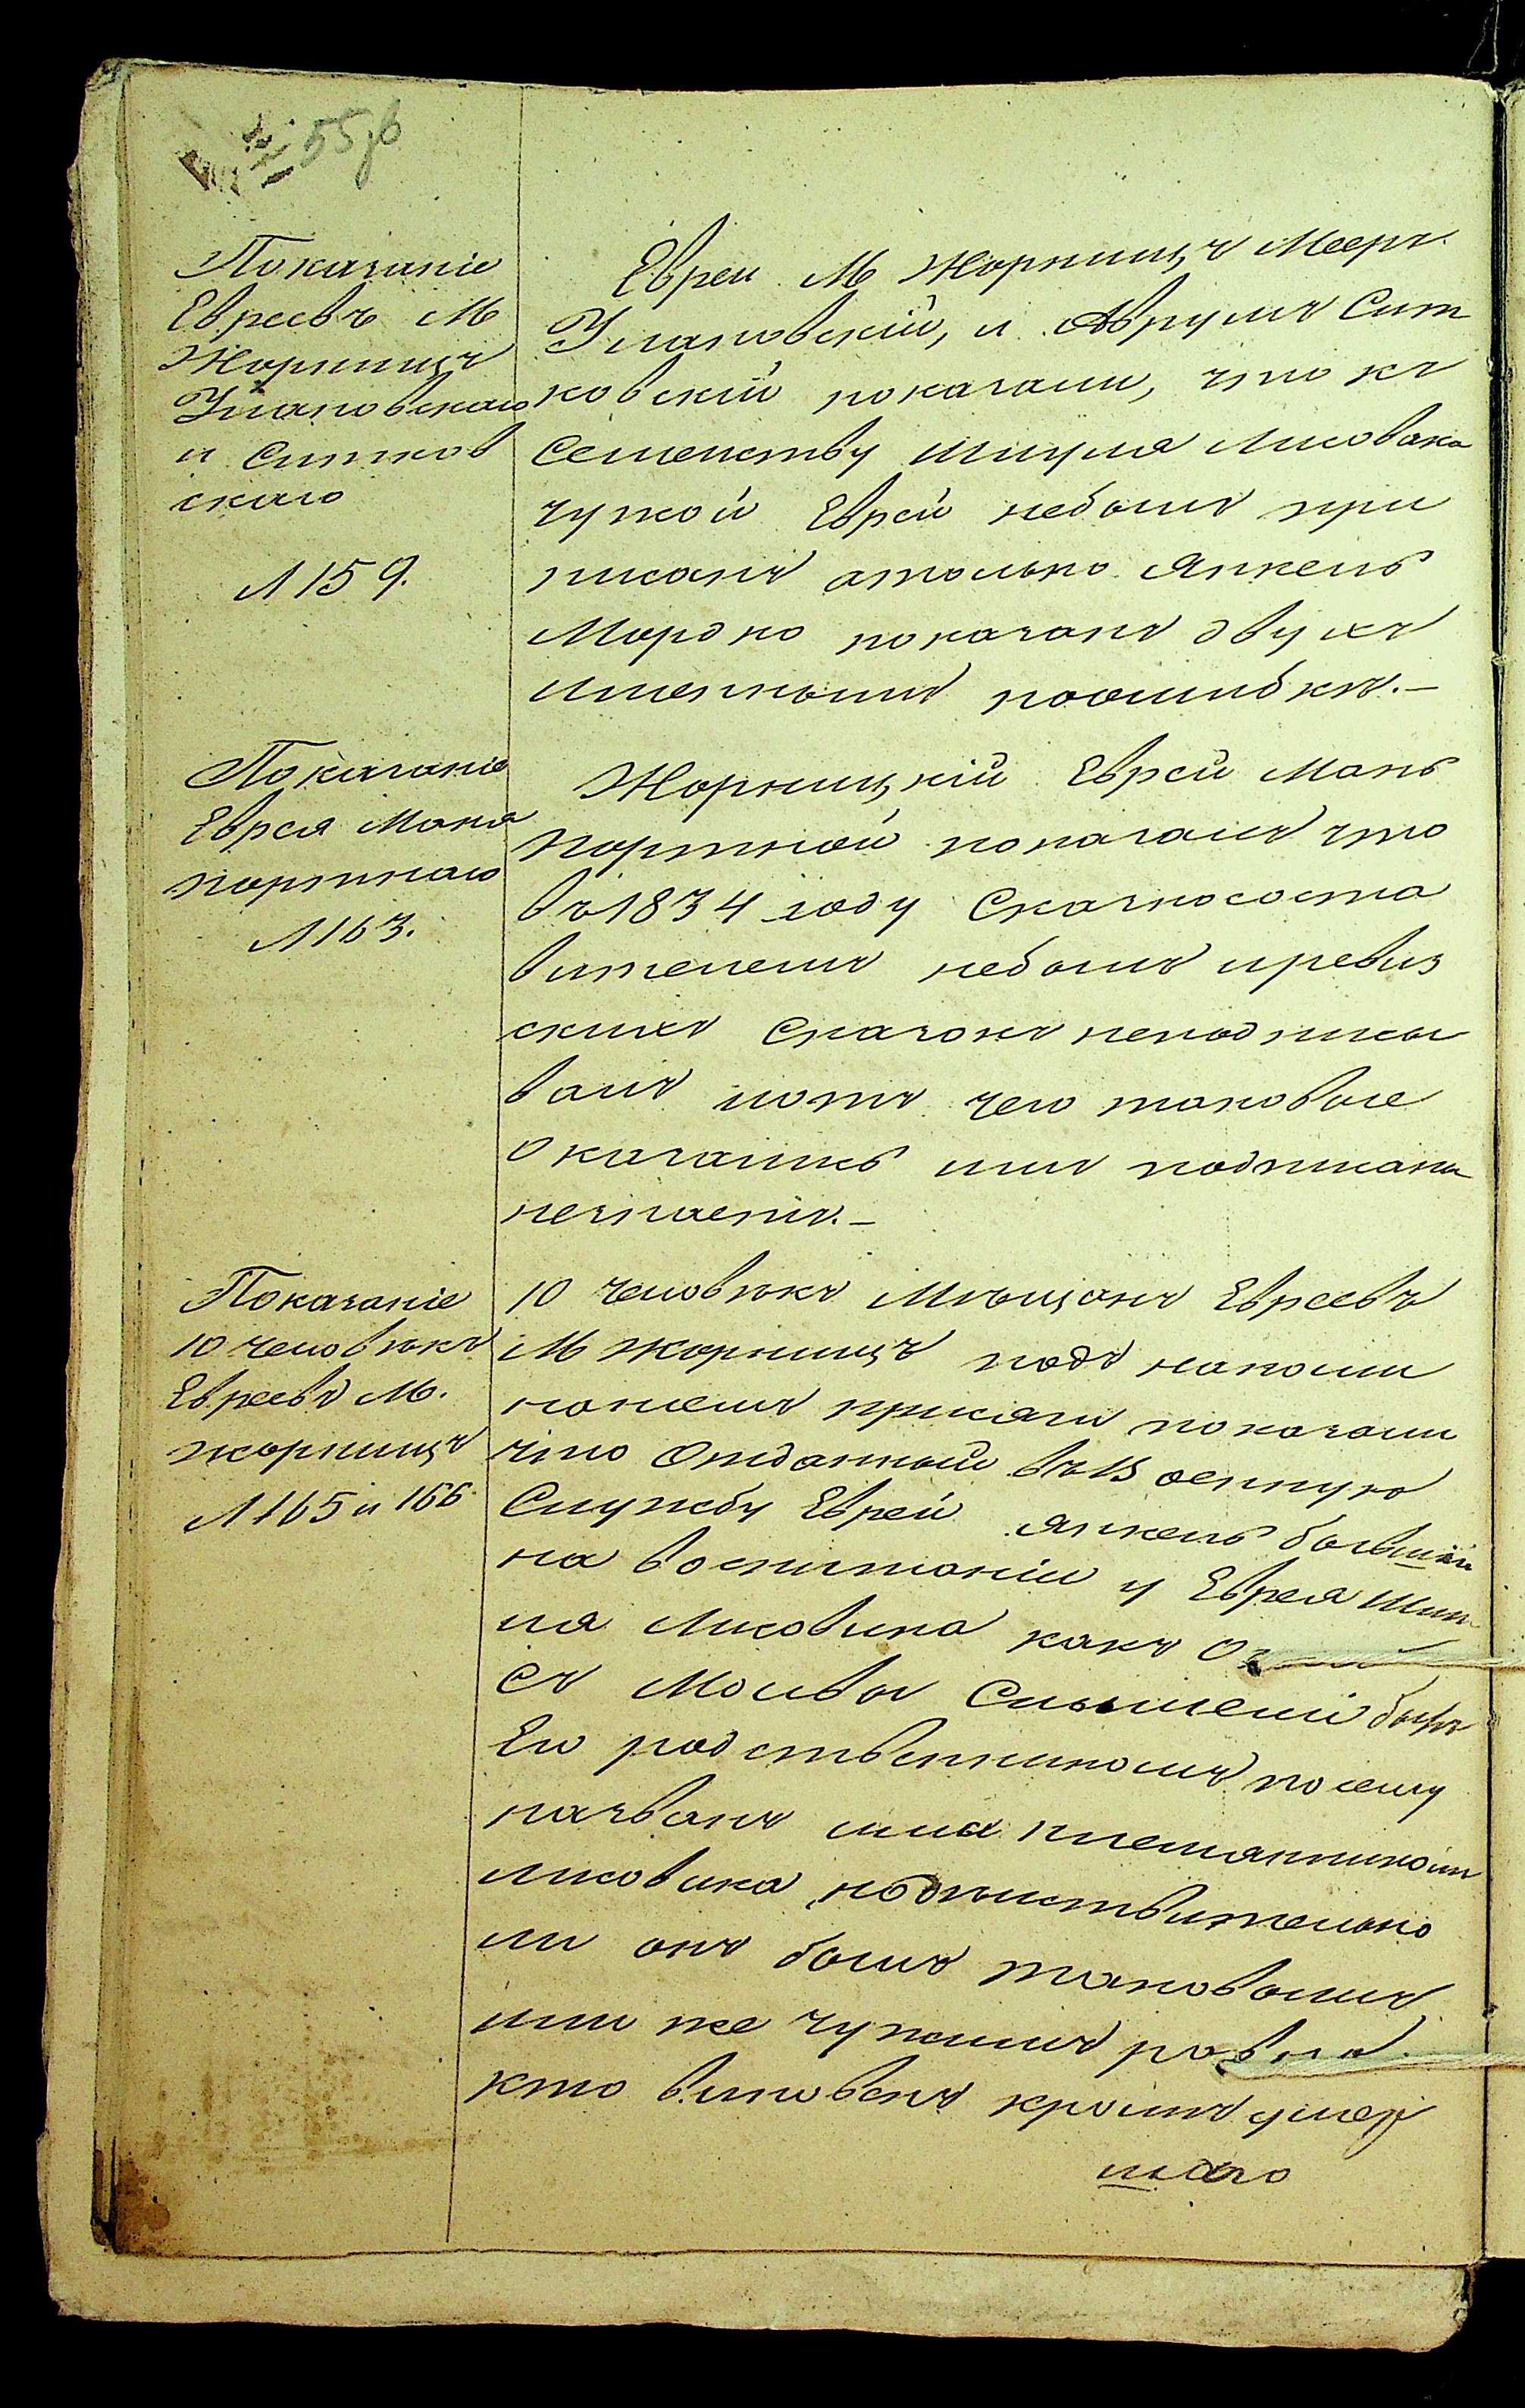 55об
Показаніе
Евреевъ М
Жорнищъ
Улановскаго
и Ситков
скаго
Л 159.
Евреи М Жорнищъ Мееръ
Улановскій, и Аврумъ Сит
ковскій показали, что къ
Семейству Шмуля Лисовака
чужой Еврей небылъ при
писанъ атолько Янкель
Мордко показанъ двухъ
имяннымъ поошибкѣ.—
Показаніе
Еврея Маня
портнаго
Л 163.
Жорнищкій Еврей Мань
портной показалъ что
въ 1834 году Сказкососта
вителемъ небылъ иревиз
скихъ Сказокъ неподписы
валъ иотъ чего таковые
Оказались имъ подписаны
незнаетъ.—
Показаніе
10 человѣкъ
Евреевъ М.
Жорнищъ
Л 165 и 166
10 человѣкъ Мѣщанъ Евреевъ
М Жорнищъ подъ напоми
наніемъ присяги показали
что Отданный въ Военную
Службу Еврей Янкель бывшій
на воспитаніи у Еврея Шму
ля Лисовика какъ
съ Молвы Слышели быть
Его родственникомъ посему
названъ ими племянникомъ
Лисовика, нодѣйствительно
ли онъ былъ таковымъ
или же чужимъ равно
кто виновенъ кромѣ умер
шаго